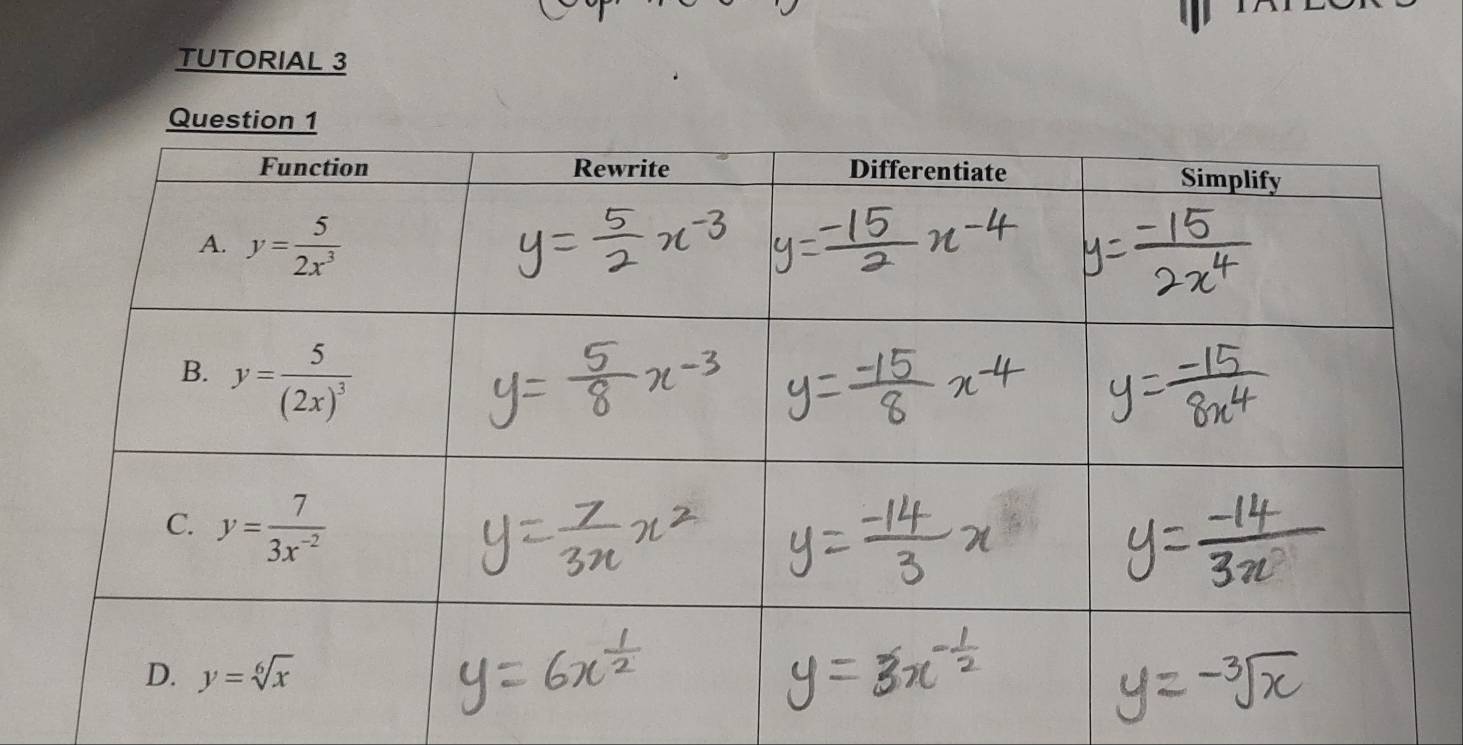 TUTORIAL 3
Question 1
Function Rewrite Differentiate Simplify
A. y = 5/(2x³) y = 5/2 x⁻³ y = -15/2 x⁻⁴ y = -15/(2x⁴)
B. y = 5/(2x)³ y = 5/8 x⁻³ y = -15/8 x⁻⁴ y = -15/(8x⁴)
C. y = 7/(3x⁻²) y = 7/(3x) x² y = -14/3 x y = -14/(3x)
D. y = ⁶√x y = 6x^(1/2) y = 3x^(-1/2) y = -³√x